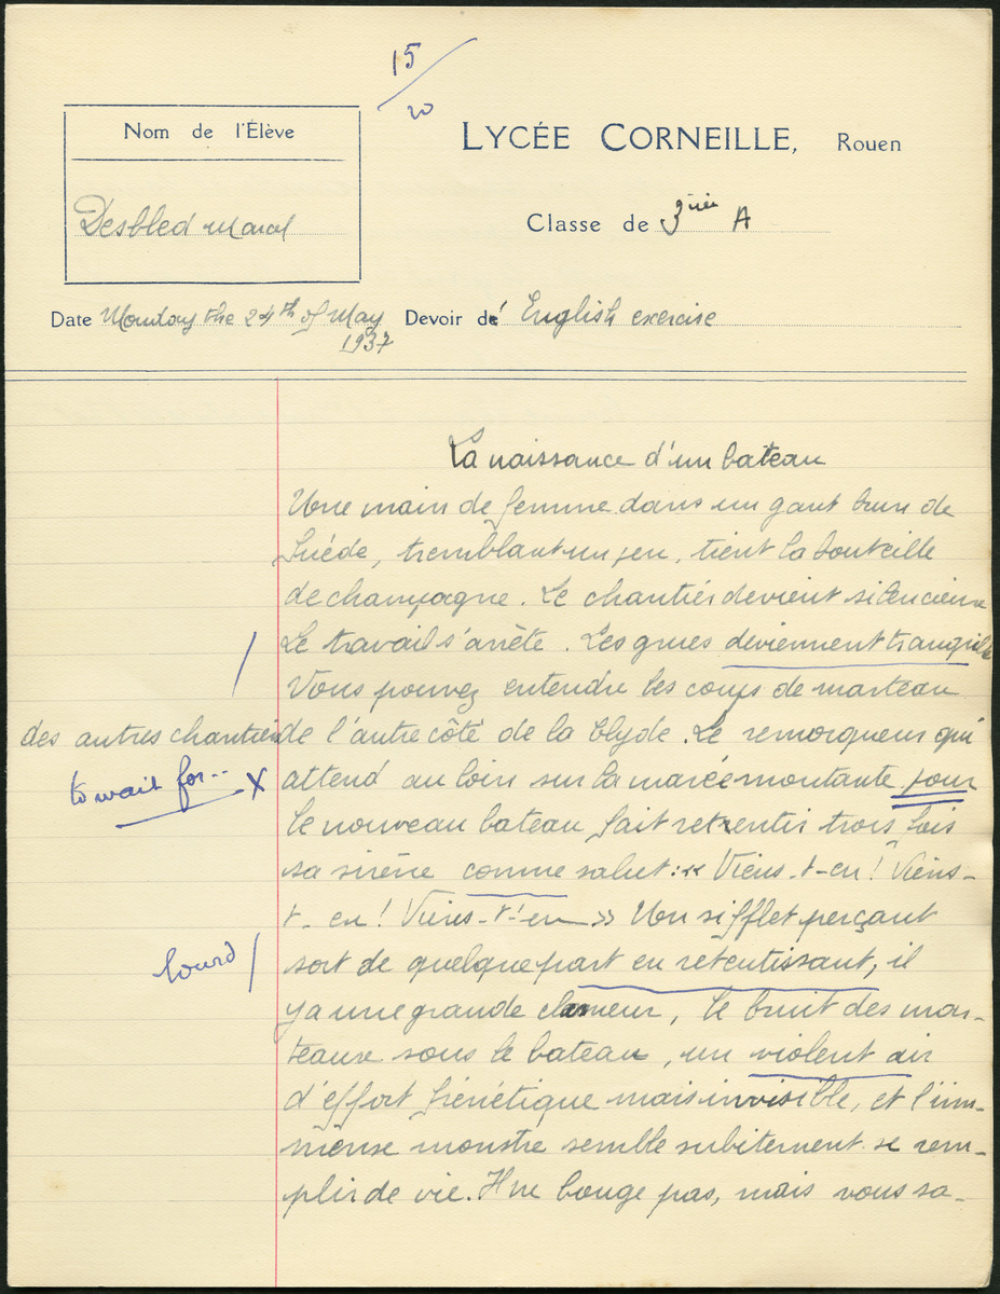 15/20
Nom de l'Élève
LYCÉE CORNEILLE, Rouen
Desbled Marcel
Classe de 3ième A
Date Monday the 24th of May 1937 Devoir d' English exercise
La naissance d'un bateau
Une main de femme dans un gant brun de
Suède, tremblant un peu, tient la bouteille
de champagne. Le chantier devient silencieux
Le travail s'arrête. Les grues deviennent tranquilles
Vous pouvez entendre les coups de marteau
des autres chantiers de l'autre côté de la Clyde. Le remorqueur qui
to wait for... x attend au loin sur la marée montante pour
le nouveau bateau fait retentir trois fois
sa sirène comme salut : « Viens-t-en ! Viens-
t-en ! Viens-t'en » Un sifflet perçant
lourd / sort de quelque part en retentissant, il
y a une grande clameur, le bruit des mar-
teaux sous le bateau, un violent air
d'effort frénétique mais invisible, et l'im-
mense monstre semble subitement se rem-
plir de vie. Il ne bouge pas, mais vous sa-